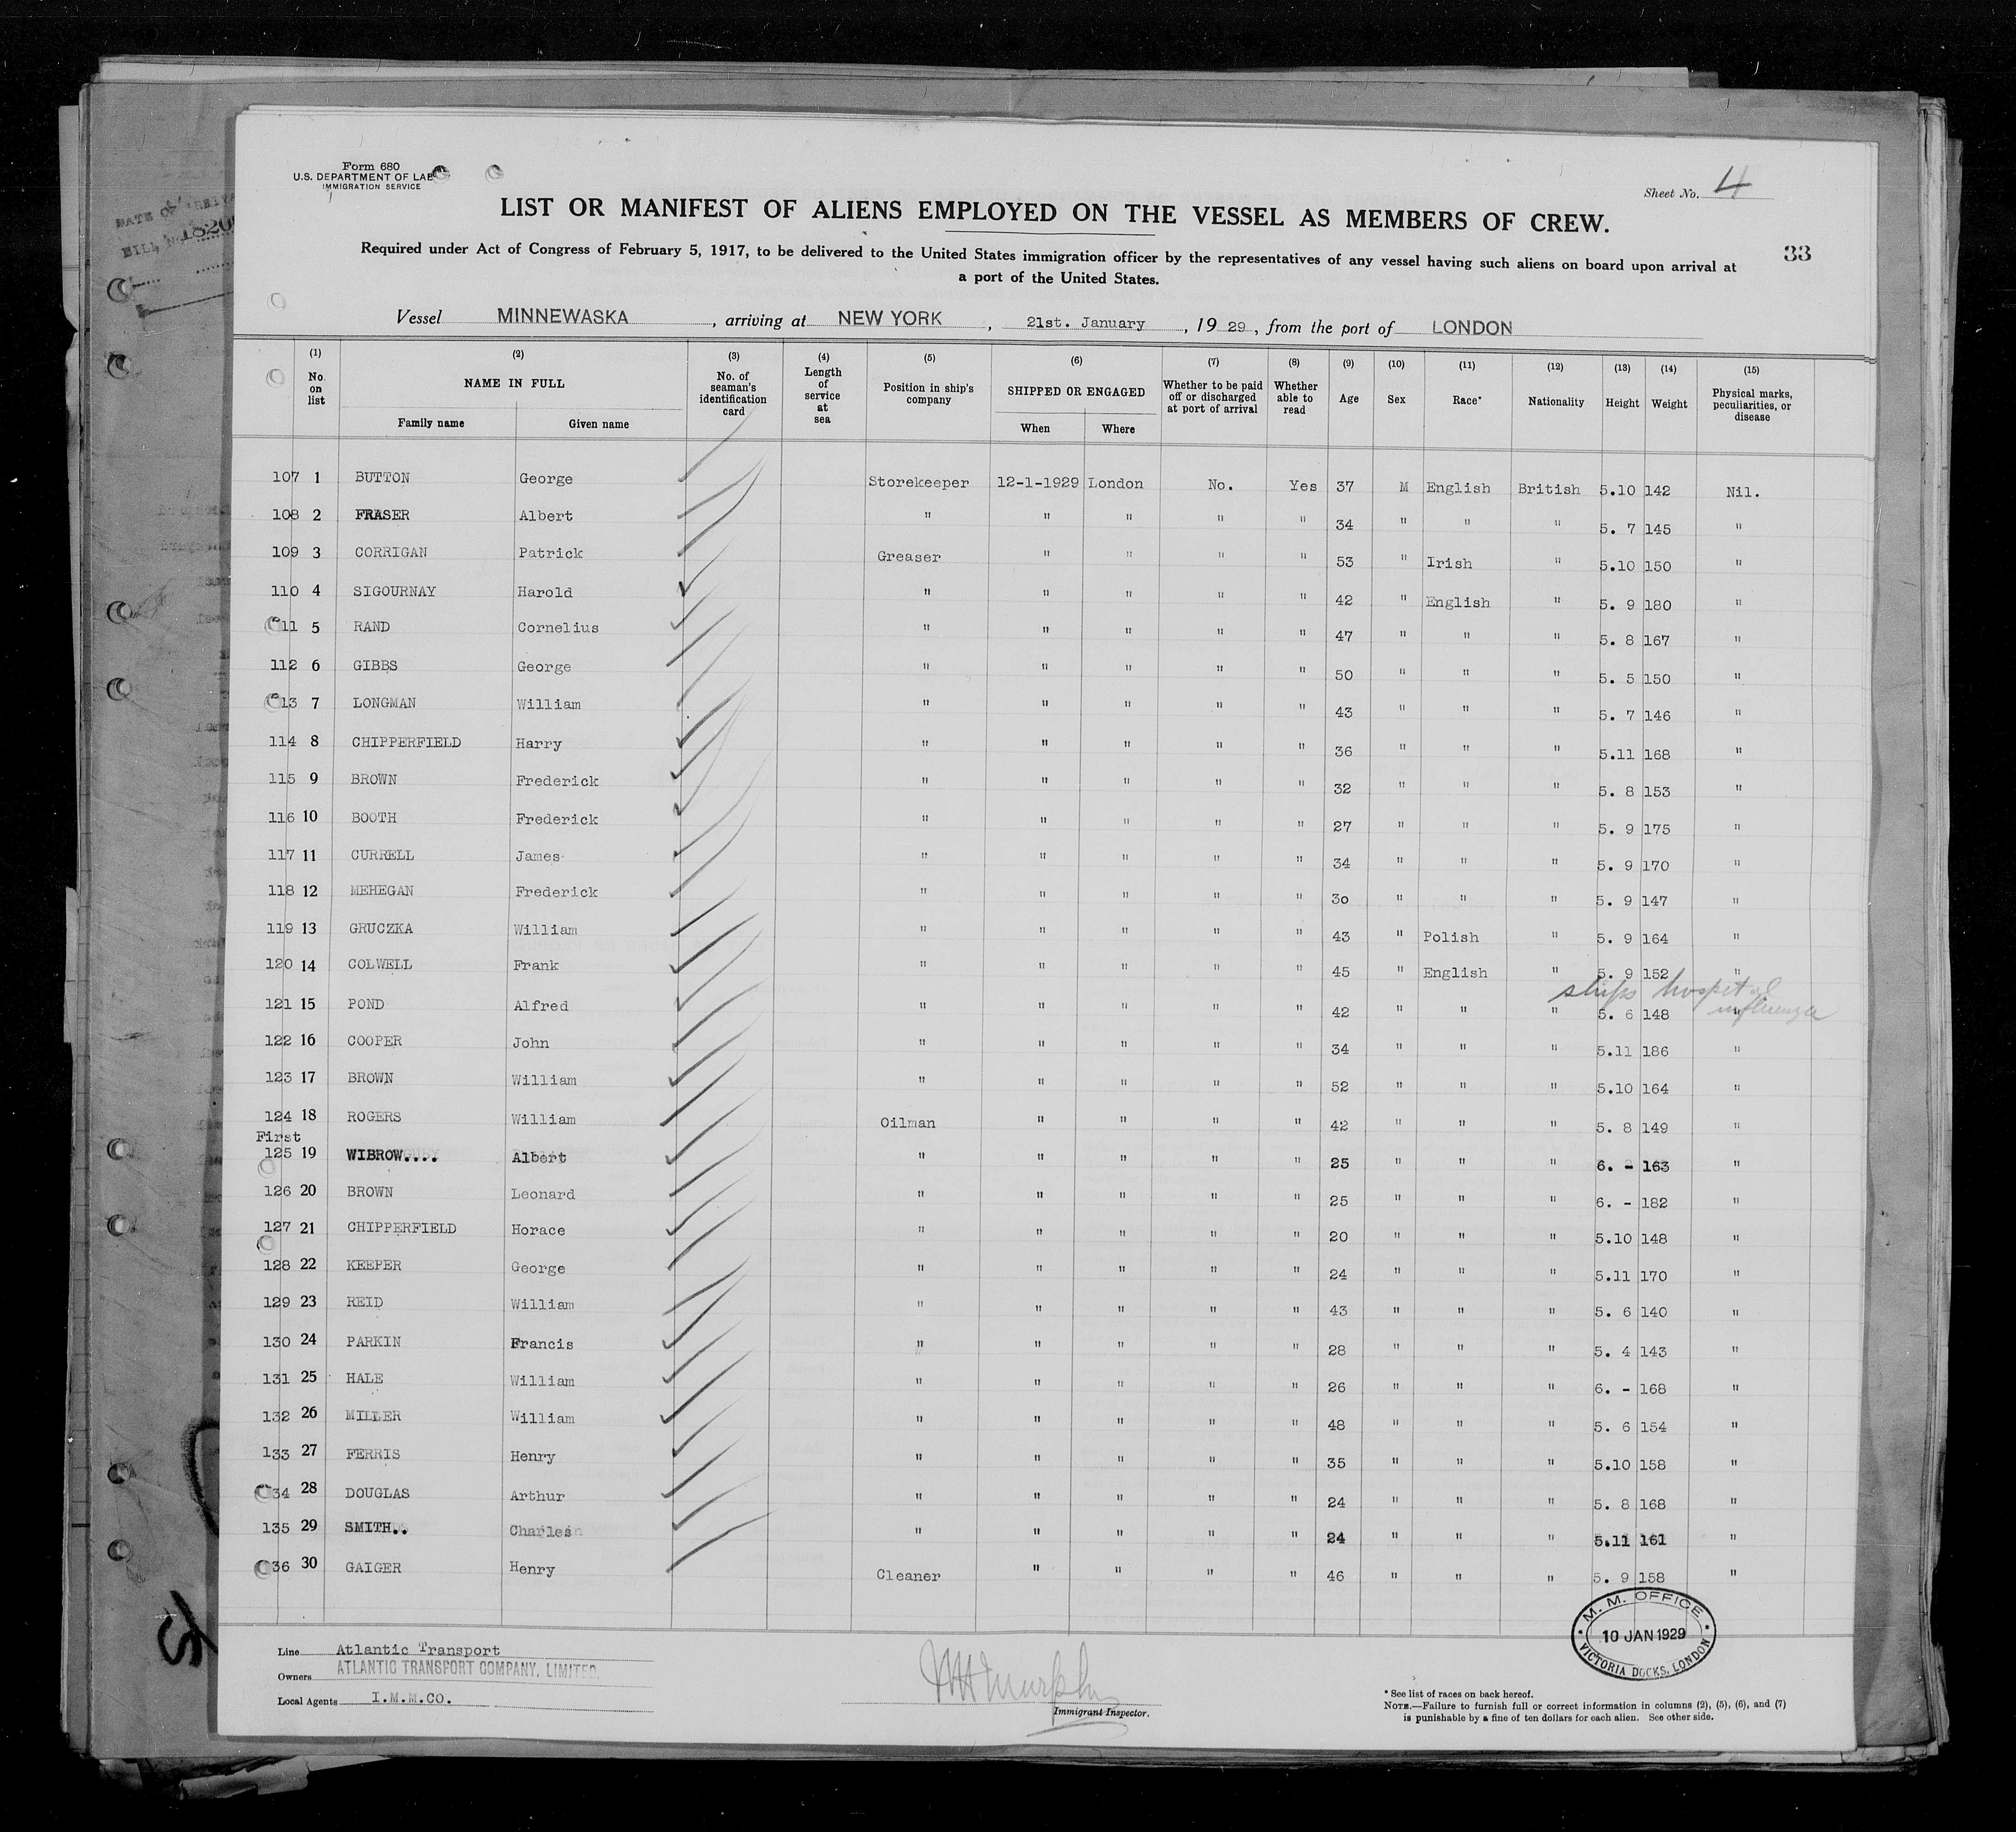 Form 680
U.S. DEPARTMENT OF LAB
IMMIGRATION SERVICE
Sheet No. 4
LIST OR MANIFEST OF ALIENS EMPLOYED ON THE VESSEL AS MEMBERS OF CREW.
Required under Act of Congress of February 5, 1917, to be delivered to the United States immigration officer by the representatives of any vessel having such aliens on board upon arrival at
a port of the United States.
33
Vessel MINNEWASKA, arriving at NEW YORK, 21st. January, 19 29, from the port of LONDON
(1) (2) (3) (4) (5) (6) (7) (8) (9) (10) (11) (12) (13) (14) (15)
No. on list NAME IN FULL Family name Given name No. of seaman's identification card Length of service at sea Position in ship's company SHIPPED OR ENGAGED When Where Whether to be paid off or discharged at port of arrival Whether able to read Age Sex Race* Nationality Height Weight Physical marks, peculiarities, or disease
107 1 BUTTON George Storekeeper 12-1-1929 London No. Yes 37 M English British 5.10 142 Nil.
108 2 FRASER Albert " " " " " 34 " " " 5. 7 145 "
109 3 CORRIGAN Patrick Greaser " " " " 53 " Irish " 5.10 150 "
110 4 SIGOURNAY Harold " " " " " 42 " English " 5. 9 180 "
11 5 RAND Cornelius " " " " " 47 " " " 5. 8 167 "
112 6 GIBBS George " " " " " 50 " " " 5. 5 150 "
13 7 LONGMAN William " " " " " 43 " " " 5. 7 146 "
114 8 CHIPPERFIELD Harry " " " " " 36 " " " 5.11 168 "
115 9 BROWN Frederick " " " " " 32 " " " 5. 8 153 "
116 10 BOOTH Frederick " " " " " 27 " " " 5. 9 175 "
117 11 CURRELL James " " " " " 34 " " " 5. 9 170 "
118 12 MEHEGAN Frederick " " " " " 30 " " " 5. 9 147 "
119 13 GRUCZKA William " " " " " 43 " Polish " 5. 9 164 "
120 14 COLWELL Frank " " " " " 45 " English " 5. 9 152 "
ships hospital
influenza
121 15 POND Alfred " " " " " 42 " " " 5. 6 148
122 16 COOPER John " " " " " 34 " " " 5.11 186 "
123 17 BROWN William " " " " " 52 " " " 5.10 164 "
124 18 ROGERS William Oilman " " " " 42 " " " 5. 8 149 "
First
125 19 WIBROW.... Albert " " " " " 25 " " " 6. - 163 "
126 20 BROWN Leonard " " " " " 25 " " " 6. - 182 "
127 21 CHIPPERFIELD Horace " " " " " 20 " " " 5.10 148 "
128 22 KEEPER George " " " " " 24 " " " 5.11 170 "
129 23 REID William " " " " " 43 " " " 5. 6 140 "
130 24 PARKIN Francis " " " " " 28 " " " 5. 4 143 "
131 25 HALE William " " " " " 26 " " " 6. - 168 "
132 26 MILLER William " " " " " 48 " " " 5. 6 154 "
133 27 FERRIS Henry " " " " " 35 " " " 5.10 158 "
34 28 DOUGLAS Arthur " " " " " 24 " " " 5. 8 168 "
135 29 SMITH.. Charles " " " " " 24 " " " 5.11 161 "
36 30 GAIGER Henry Cleaner " " " " 46 " " " 5. 9 158 "
M. M. OFFICE
10 JAN 1929
VICTORIA DOCKS, LONDON
Line Atlantic Transport
Owners ATLANTIC TRANSPORT COMPANY, LIMITED.
Local Agents I.M.M.CO.
Murphy
Immigrant Inspector.
* See list of races on back hereof.
NOTE.—Failure to furnish full or correct information in columns (2), (5), (6), and (7)
is punishable by a fine of ten dollars for each alien. See other side.